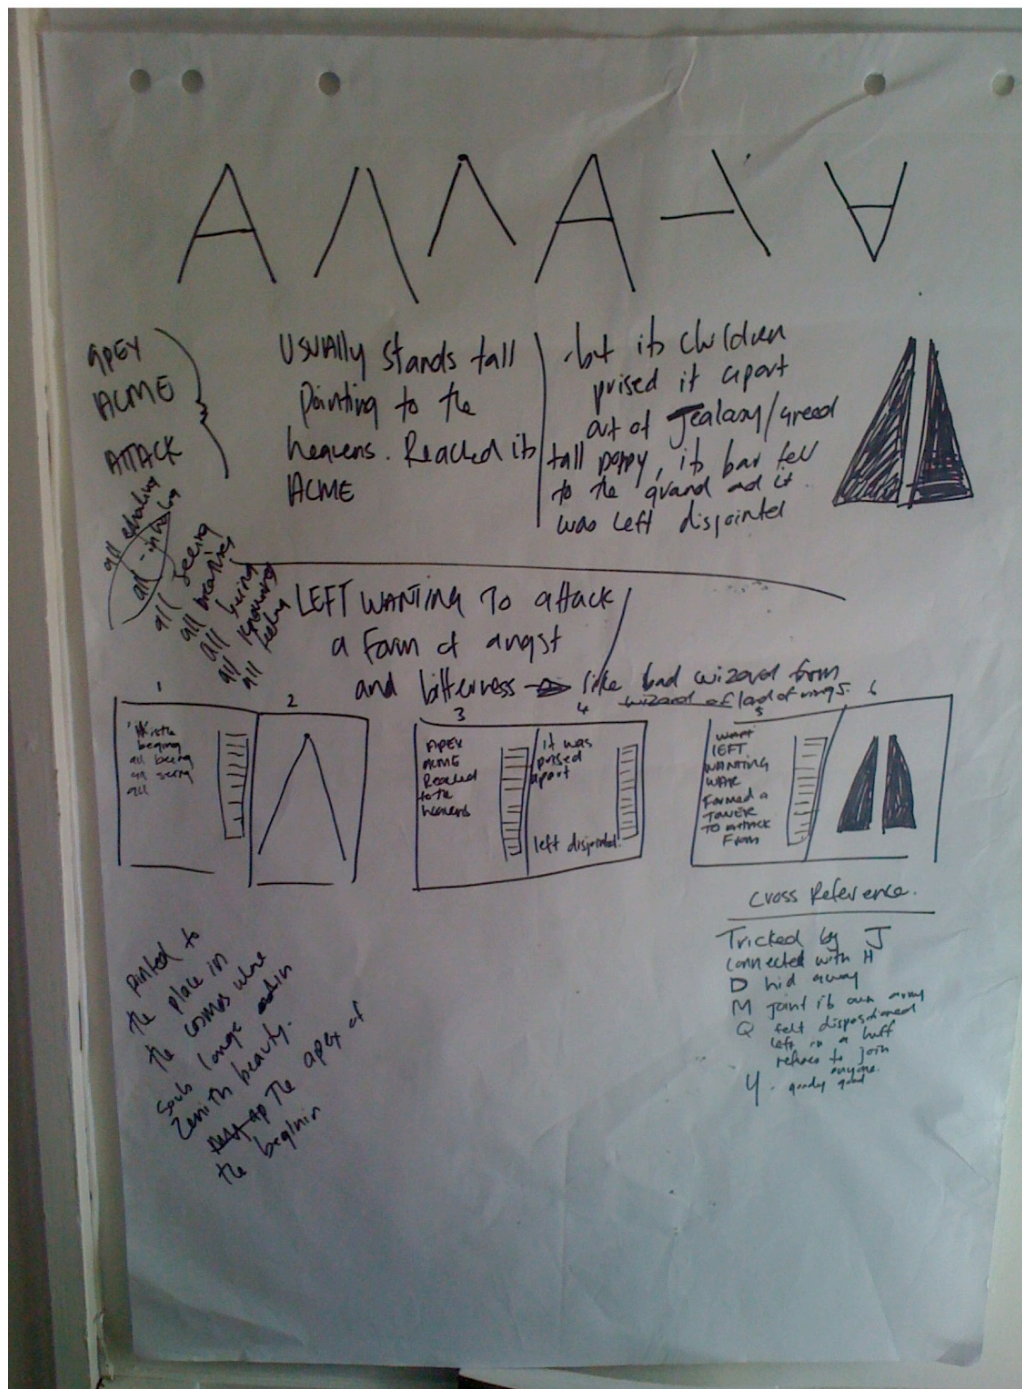 A Λ Λ A
APEX
ACME
ATTACK
USUAlly stands tall
Pointing to the
heavens. Reached its
ACME
but its children
prised it apart
out of Jealousy/Greed
tall poppy, its bar fell
to the ground and it
was left disjointed
all seeing
all being
all knowing
all feeling
LEFT WANTING TO attack
a form of angst
and bitterness like bad wizard from
wizard of lord of rings.
1
2
3
4
5
6
begining
all being
all seeing
all
APEX
ACME
Reached
to the
heavens
it was
prised
apart
left disjointed.
LEFT
WANTING
WAR
Formed a
TOWER
TO attack
From
Cross Reference.
Tricked by J
connected with H
D hid away
M joint its own army
Q felt dispositioned
left in a huff
refuses to join
anyone.
Y. goody good
pointed to
the place in
the cosmos where
souls longe
Zenith beauty.
The apex of
the beginin